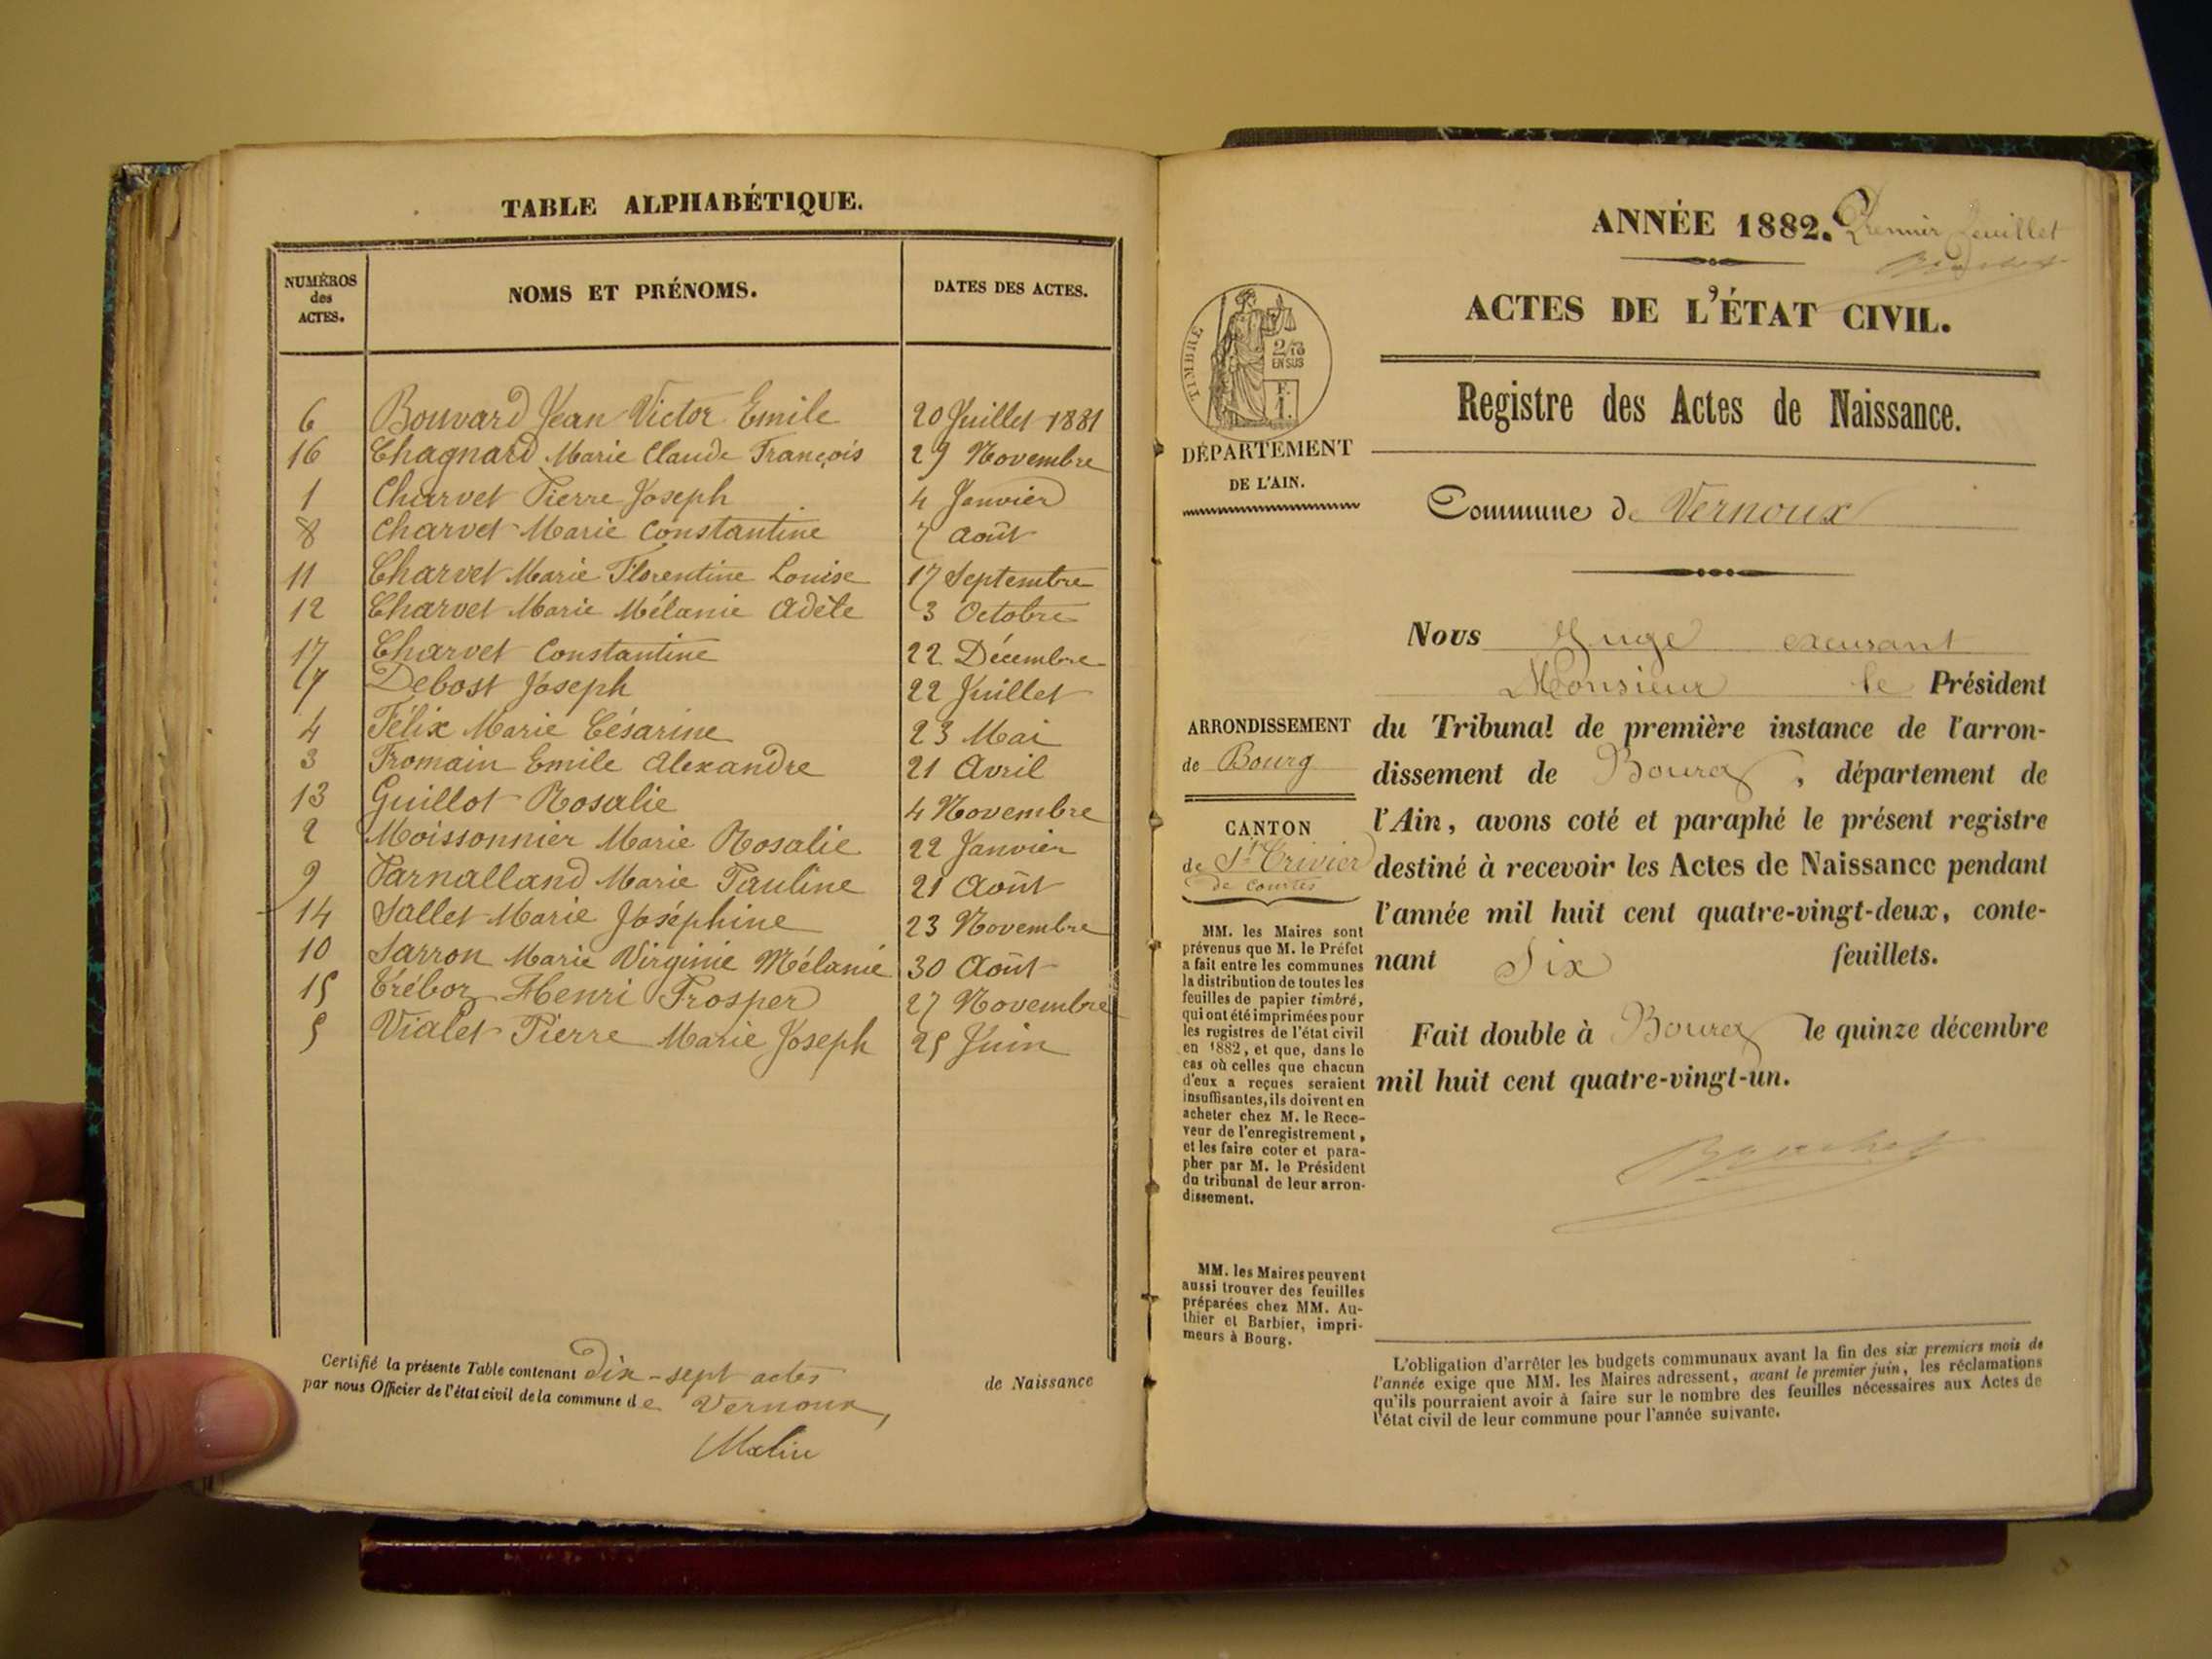 TABLE ALPHABÉTIQUE.
NUMÉROS
des
ACTES.
NOMS ET PRÉNOMS.
DATES DES ACTES.
6 Bouvard Jean Victor Emile 20 Juillet 1881
16 Chagnard Marie Claude François 29 Novembre
1 Charvet Pierre Joseph 4 Janvier
8 Charvet Marie Constantine 7 Août
11 Charvet Marie Florentine Louise 17 Septembre
12 Charvet Marie Mélanie Adèle 3 Octobre
17 Charvet Constantine 22 Décembre
7 Debost Joseph 22 Juillet
4 Félix Marie Césarine 23 Mai
3 Fromain Emile Alexandre 21 Avril
13 Guillot Rosalie 4 Novembre
2 Moissonnier Marie Rosalie 22 Janvier
9 Parnalland Marie Pauline 21 Août
14 Sallet Marie Joséphine 23 Novembre
10 Sarron Marie Virginie Mélanie 30 Août
15 Tréboz Henri Prosper 27 Novembre
5 Vialet Pierre Marie Joseph 25 Juin
Certifié la présente Table contenant Dix-sept actes de Naissance
par nous Officier de l'état civil de la commune de Vernoux,
ANNÉE 1882. Premier feuillet
ACTES DE L'ÉTAT CIVIL.
TIMBRE
2/10
EN SUS
F.
1.
Registre des Actes de Naissance.
DÉPARTEMENT
DE L'AIN.
Commune de Vernoux
Nous Juge excusant
Monsieur le Président
du Tribunal de première instance de l'arron-
dissement de Bourg, département de
l'Ain, avons coté et paraphé le présent registre
destiné à recevoir les Actes de Naissance pendant
l'année mil huit cent quatre-vingt-deux, conte-
nant Six feuillets.
Fait double à Bourg le quinze décembre
mil huit cent quatre-vingt-un.
ARRONDISSEMENT
de Bourg
CANTON
de St Trivier
de Courtes
MM. les Maires sont
prévenus que M. le Préfet
a fait entre les communes
la distribution de toutes les
feuilles de papier timbré,
qui ont été imprimées pour
les registres de l'état civil
en 1882, et que, dans le
cas où celles que chacun
d'eux a reçues seraient
insuffisantes, ils doivent en
acheter chez M. le Rece-
veur de l'enregistrement,
et les faire coter et para-
pher par M. le Président
du tribunal de leur arron-
dissement.
MM. les Maires peuvent
aussi trouver des feuilles
préparées chez MM. Au-
thier et Barbier, impri-
meurs à Bourg.
L'obligation d'arrêter les budgets communaux avant la fin des six premiers mois de
l'année exige que MM. les Maires adressent, avant le premier juin, les réclamations
qu'ils pourraient avoir à faire sur le nombre des feuilles nécessaires aux Actes de
l'état civil de leur commune pour l'année suivante.